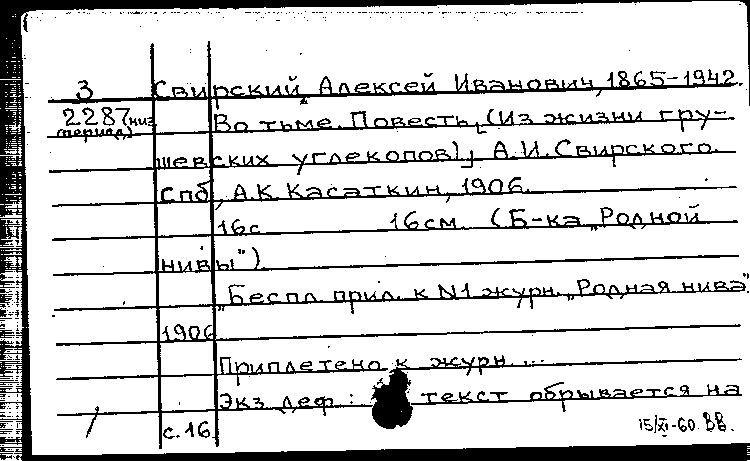 3 Свирский, Алексей Иванович, 1865-1942.
2287 низ Во тьме. Повесть, (Из жизни гру-
(период)
шевских углекопов), А.И.Свирского.
Спб, А.К.Касаткин, 1906.
16с 16см. (Б-ка „Родной
нивы")
„Беспл. прил. к N1 журн. „Родная нива"
1906
Приплетено к журн...
Экз деф: текст обрывается на
с.16. 15/XI-60.